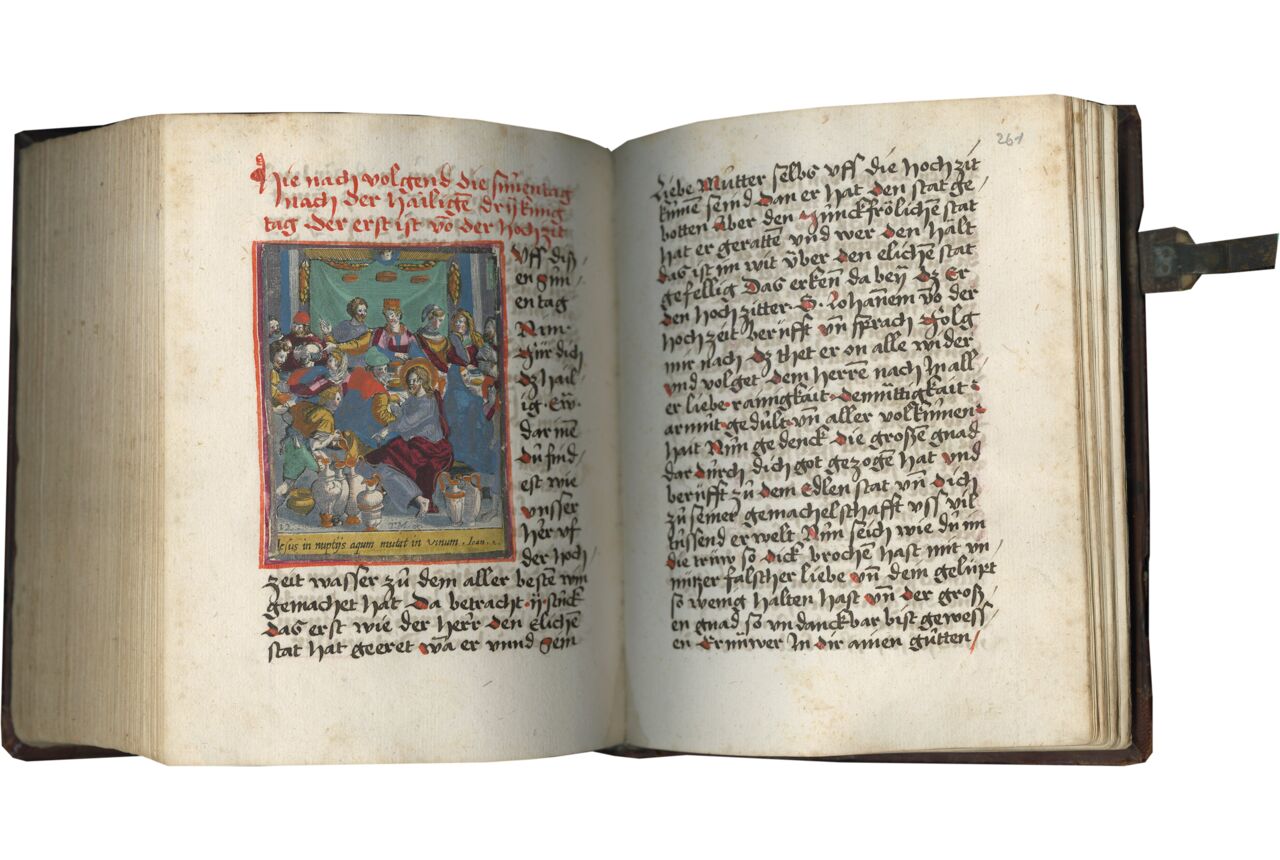 Hie nach volgend die sun̄entag
nach der hailigē drÿkúnig
tag der erst ist vō der hochzit
Vff diß
en sun
entag
Nim
für dich
dz hail
ig Ew
dar īne
du find
est wie
vnsser
herr vf
der hoch
zeit wasser zů dem aller bestē win
gemachet hat Da betracht ij stuck
Das erst wie der herr den elichē
stat hat geeret wā er vnnd sein
Iesus in nuptijs aqum mutat in vinum. Ioan. 2.
261
liebe Mutter selbs vff die hochzit
kumē seind dan er hat den stat ge
botten über den Junckfrölichē stat
hat er geratten vnd wer den halt
das ist im wit über den elichē stat
gefellig Das erken da beÿ Dz Er
den hochzitter S. Iohanem vō der
hochzeit berufft vn̄ sprach folg
mir nach Dz thet er on alle wider
vnd volget dem herrē nach in all
er liebe rainigkait demüttigkait
armut gedult vn̄ aller volkumen
hait Nim gedenck die große gnad
dar durch dich got gezogē hat vnd
berufft zů dem Edlen stat vn̄ dich
zů seiner gemachelschafft vss vil
tussend er welt Nun seich wie du im
die trúw so dick brochē hast mit vn
nutzer falscher liebe vn̄ dem gelüpt
so wenig halten hast vn̄ der groß
en gnad so vndanckbar bist gewess
en Ernúwer In dir ainen gůtten